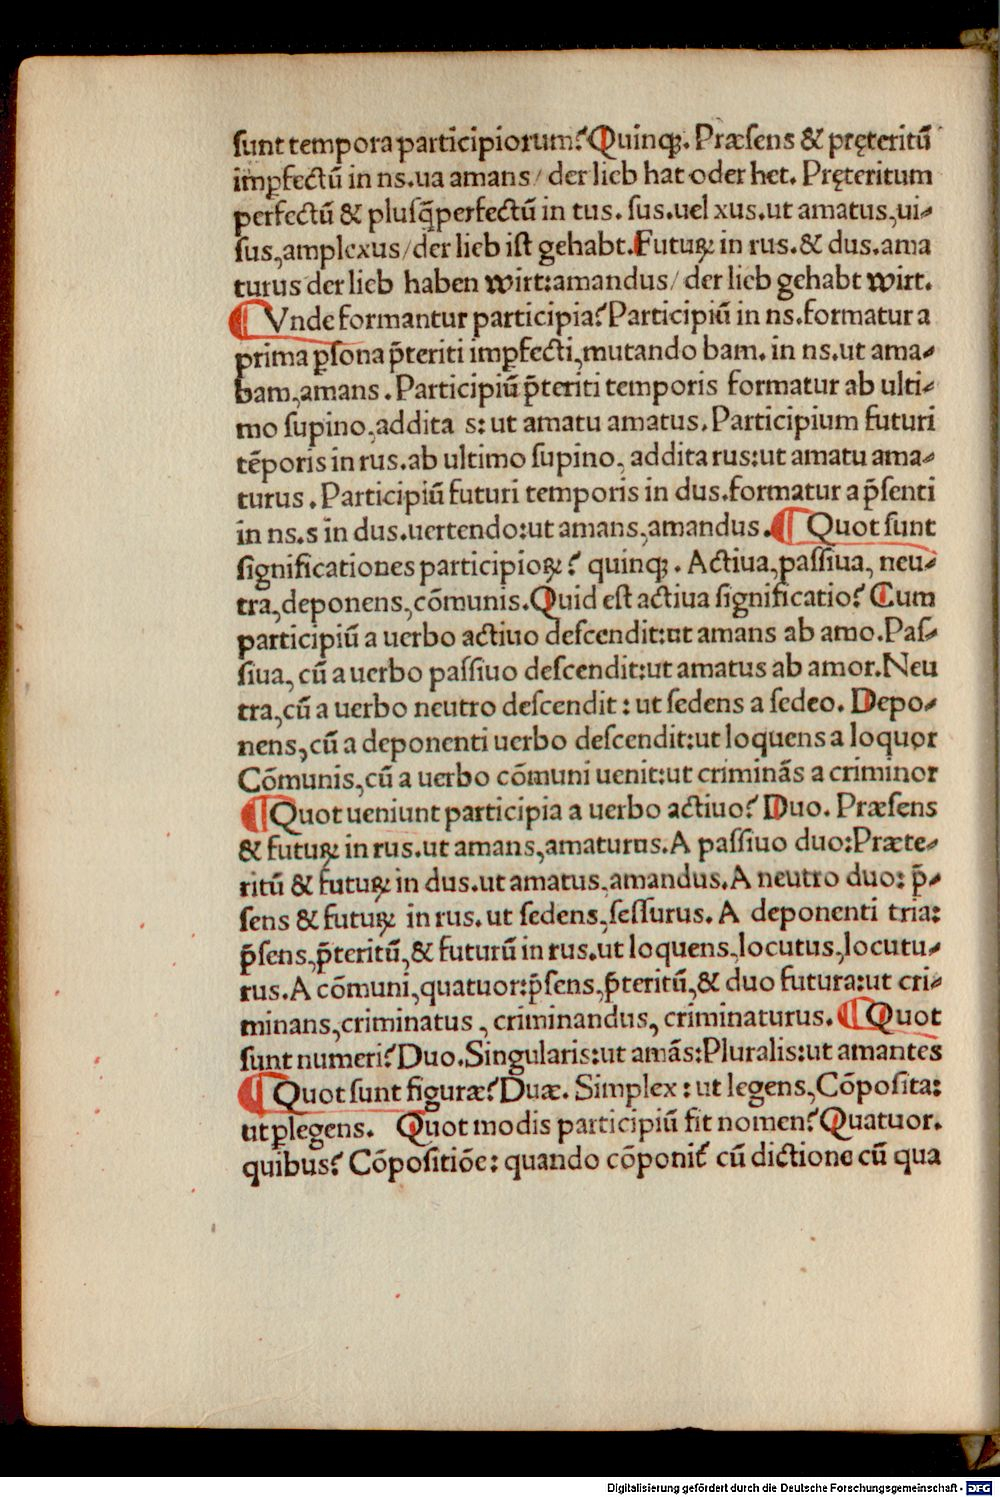 ſunt tempora participiorum? Quinqꝫ. Præſens & pręteritū
imꝑfectū in ns.ua amans/ der lieb hat oder het. Pręteritum
perfectū & pluſq̄perfectū in tus. ſus.uel xus.ut amatus,ui⸗
ſus,amplexus/der lieb iſt gehabt.Futuꝝ in rus.& dus.ama
turus der lieb haben wirt:amandus/ der lieb gehabt wirt.
¶ Vnde formantur participia? Participiū in ns.formatur a
prima ꝑſona p̄teriti imꝑfecti,mutando bam. in ns.ut ama⸗
bam,amans . Participiū p̄teriti temporis formatur ab ulti⸗
mo ſupino,addita s: ut amatu amatus. Participium futuri
tēporis in rus.ab ultimo ſupino, addita rus:ut amatu ama⸗
turus . Participiū futuri temporis in dus.formatur a p̄ſenti
in ns.s in dus.uertendo:ut amans,amandus. ¶ Quot ſunt
ſignificationes participioꝝ? quinqꝫ . Actiua,paſſiua, neu⸗
tra,deponens,cōmunis.Quid eſt actiua ſignificatio? Cum
participiū a uerbo actiuo deſcendit:ut amans ab amo.Paſ⸗
ſiua, cū a uerbo paſſiuo deſcendit:ut amatus ab amor.Neu
tra,cū a uerbo neutro deſcendit : ut ſedens a ſedeo. Depo⸗
nens,cū a deponenti uerbo deſcendit:ut loquens a loquor
Cōmunis,cū a uerbo cōmuni uenit:ut criminās a criminor
¶ Quot ueniunt participia a uerbo actiuo? Duo. Præſens
& futuꝝ in rus.ut amans,amaturus.A paſſiuo duo:Præte⸗
ritū & futuꝝ in dus.ut amatus,amandus.A neutro duo: p̄⸗
ſens & futuꝝ in rus. ut ſedens,ſeſſurus. A deponenti tria:
p̄ſens,p̄teritū,& futurū in rus.ut loquens,locutus,locutu⸗
rus.A cōmuni,quatuor:p̄ſens,p̄teritū,& duo futura:ut cri⸗
minans,criminatus , criminandus, criminaturus. ¶ Quot
ſunt numeri? Duo.Singularis:ut amās:Pluralis:ut amantes
¶ Quot ſunt figuræ? Duæ. Simplex : ut legens,Cōpoſita:
ut ꝑlegens. Quot modis participiū fit nomen? Quatuor.
quibus? Cōpoſitiōe: quando cōponit᷑ cū dictione cū qua
Digitalisierung gefördert durch die Deutsche Forschungsgemeinschaft - DFG